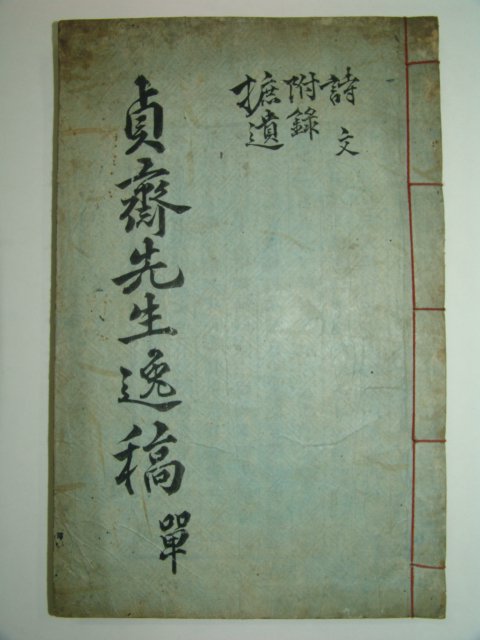 詩 文
附錄
摭遺
貞齋先生逸稿 單